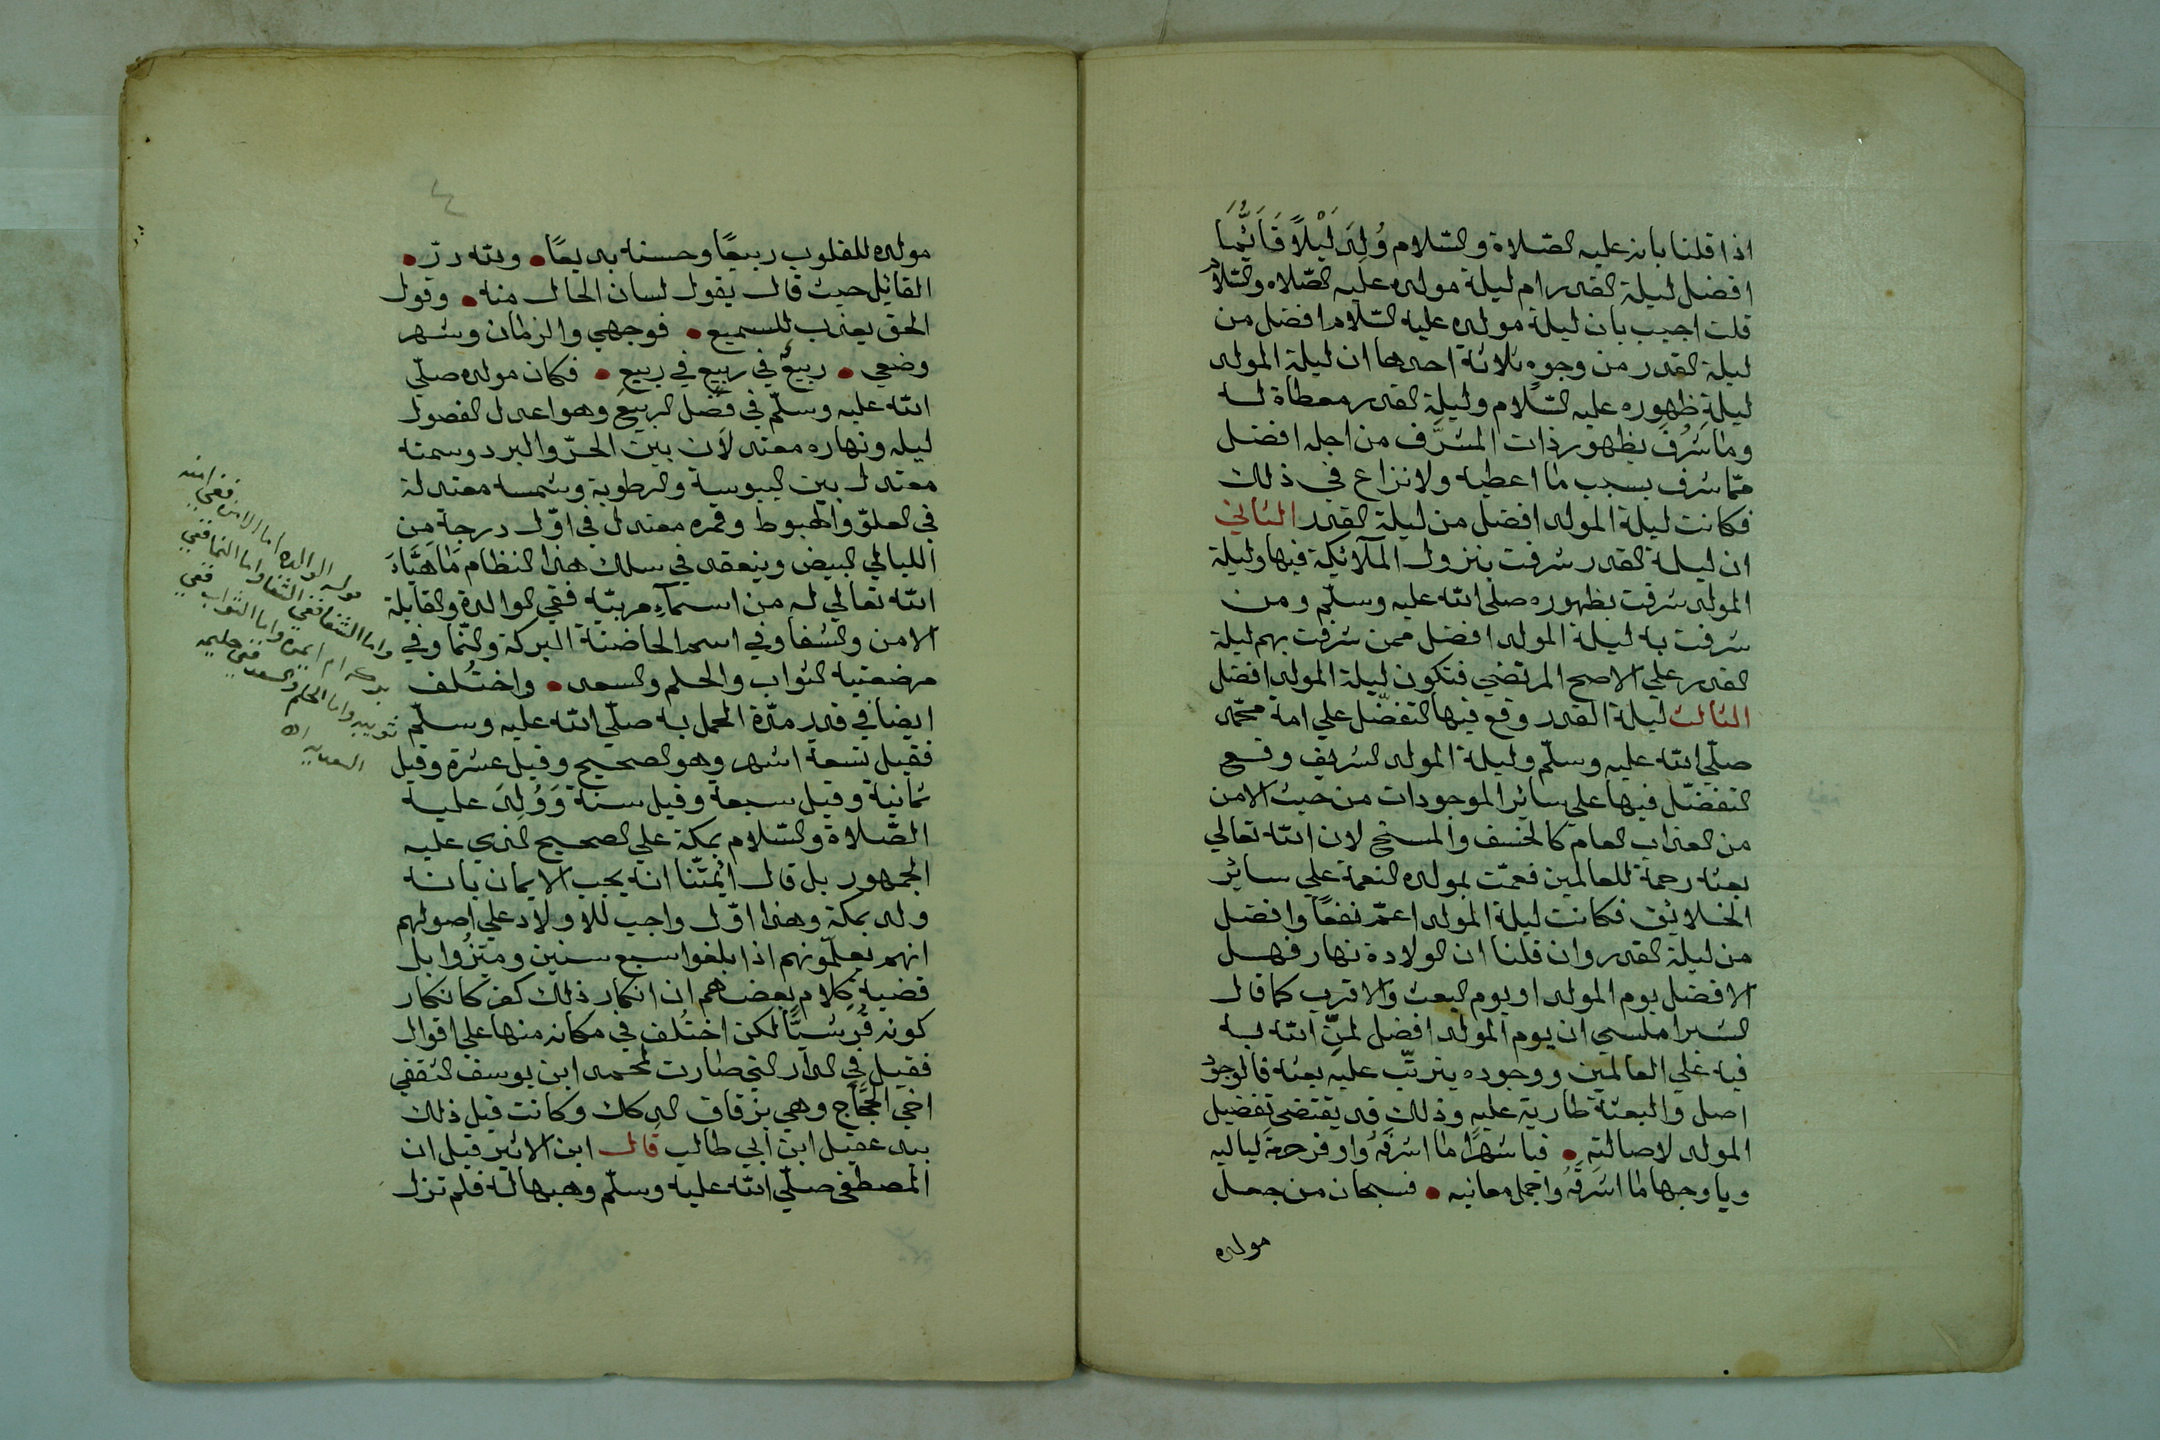 اذا قلنا بانه عليه الصّلاة والسّلام وُلِدَ لَيْلًا فَاَيُّمَا
افضل ليلة القدر ام ليلة مولده عليه الصّلاه والسّلام
قلت اجيب بان ليلة مولده عليه السّلام افضل من
ليلة القدر من وجوه ثلاثة احدها ان ليلة المولد
ليلة ظهوره عليه السّلام وليلة القدر معطاة له
وما شَرُفَ بظهور ذات المشرَّف من اجله افضل
ممّا شرف بسبب ما اعطيه ولا نزاع في ذلك
فكانت ليلة المولد افضل من ليلة القدر الثاني
ان ليلة القدر شرفت بنزول الملآئكة فيها وليلة
المولد شرفت بظهوره صلى الله عليه وسلّم ومن
شرفت به ليلة المولد افضل ممن شرفت بهم ليلة
القدر علي الاصح المرتضي فتكون ليلة المولد افضل
الثالث ليلة القدر وقع فيها التفضّل علي امة محمّد
صلّي الله عليه وسلّم وليلة المولد الشريف وقع
التفضّل فيها علي سائر الموجودات من حيث الامن
من العذاب العام كالخسف والمسخ لان الله تعالي
بعثه رحمة للعالمين فعمّت بمولده النعمة علي سائر
الخلائق فكانت ليلة المولد اعمّ نفعًا وافضل
من ليلة القدر وان قلنا ان الولادة نهار فهل
الافضل يوم المولد او يوم البعث والاقرب كما قال
الشبراملسي ان يوم المولد افضل لمنّ الله به
فيه علي العالمين ووجوده يترتّب عليه بعثه فالوجود
اصل والبعثة طارية عليه وذلك قد يقتضي تفضيل
المولد لاصالته • فيا شهرًا ما اشرفَهُ واوفر حرمةَ لياليه
ويا وجهًا ما اشرَقَهُ واجمل معانيه • فسبحان من جعل
مولده
٤
مولده للقلوب ربيعًا وحسنه بديعًا • ولله درّ •
القائل حيث قال يقول لسان الحال منه • وقول
الحق يعذب للسميع • فوجهي والزمان وشهر
وضعي • ربيعٌ في ربيعٍ في ربيعِ • فكان مولده صلّي
الله عليه وسلّم في فصل الربيع وهو اعدل الفصول
ليله ونهاره معتدلان بين الحرّ والبرد وسمته
معتدل بين اليبوسة والرطوبة وشمسه معتدلة
في العلوّ والهبوط وقمره معتدل في اوّل درجة من
الليالي البيض وينعقد في سلك هذا النظام ما هَيَّاهُ
الله تعالي له من اسمآء مربيّه ففي الوالدة والقابلة
الامن والشفا وفي اسم الحاضنة البركة والنّما وفي
مرضعتيه الثواب والحلم والسعد • واختُلف
ايضا في قدر مدّة الحمل به صلّي الله عليه وسلّم
فقيل تسعة اشهر وهو الصحيح وقيل عشرة وقيل
ثمانية وقيل سبعة وقيل ستة وَوُلِدَ عليه
الصّلاة والسّلام بمكة علي الصحيح الذي عليه
الجمهور بل قال ائمتّنا انه يجب الايمان بانه
ولد بمكة وهذا اوّل واجب للاولاد علي اصولهم
انهم يعلّمونهم اذا بلغوا سبع سنين وميّزُوا بل
قضية كلام بعضهم ان انكار ذلك كفر كانكار
كونه قُرشيًّا لكن اختُلف في مكانه منها علي اقوال
فقيل في الدار التي صارت لمحمد ابن يوسف الثقفي
اخي الحجَّاج وهي بزقاق الدكك وكانت قبل ذلك
بيد عقيل ابن ابي طالب قال ابن الاثير قيل ان
المصطفي صلّي الله عليه وسلّم وهبها له فلم تزل
قوله الوالده اما الامن ففي امنه
واما الشفا ففي الشفا واما النما ففي
بركه ام ايمن واما الثواب ففي
ثويبه واما الحلم والسعد ففي حليمه
السعديه اه